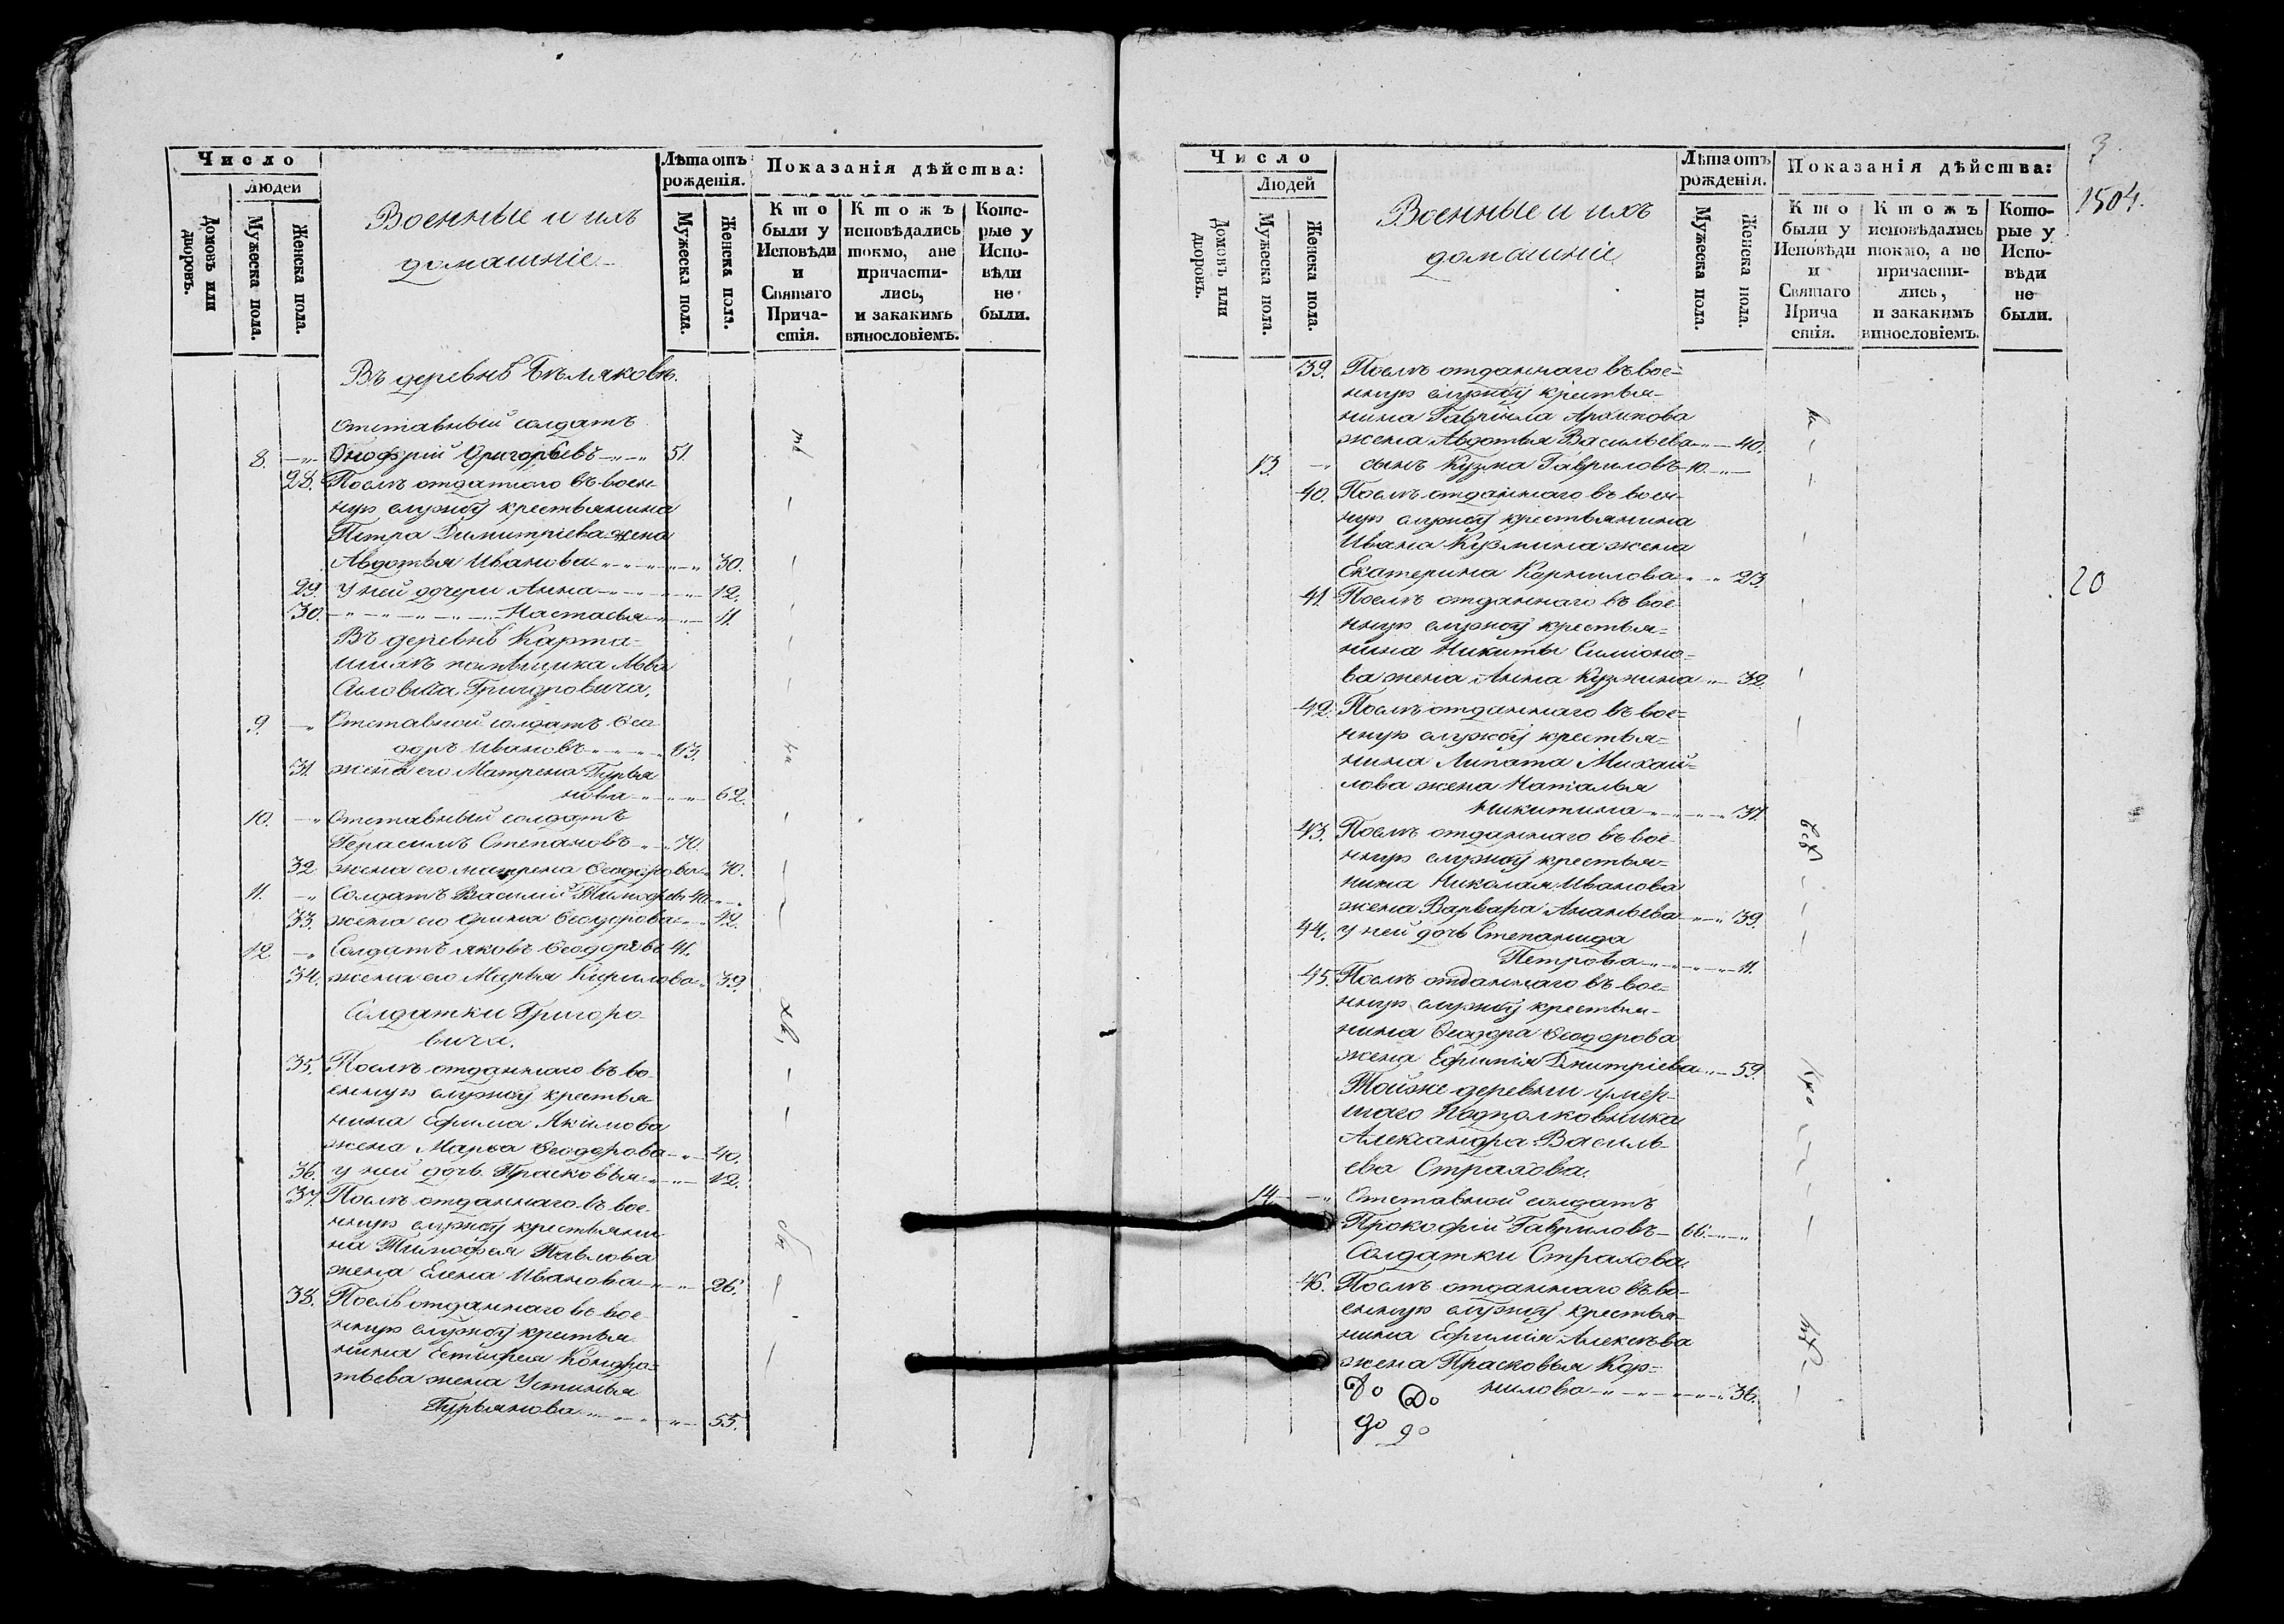 Число
Людей
Домовъ или дворовъ.
Мужеска пола.
Женска пола.
Военные и ихъ
домашніе
Лѣта отъ рожденія.
Мужеска пола.
Женска пола.
Показанія дѣйства:
Кто были у Исповѣди и Святаго Прича-стія.
Ктожъ исповѣдались токмо, а не причасти-лись, и закакимъ винословіемъ.
Кото-рые у Испо-вѣди не были.
Въ деревнѣ Бѣляковѣ.
Отставный солдатъ
8. Онофрій Григорьевъ 51.
28. Послѣ отданнаго въ воен-
ную службу крестьянина
Петра Димитріева жена
Авдотья Иванова 30.
29. У ней дочери Анна 12.
30. Настасья 11.
Въ деревнѣ Карта-
помѣщика Льва
Силовича Григоровича.
9. Отставной солдатъ Ѳео-
доръ Ивановъ 73.
31. жена его Матрена Гурья
нова 62.
10. Отставный солдатъ
Герасимъ Степановъ 70.
32. жена его матрена Ѳеодорова 70.
11. Солдатъ Василій Тимофеевъ 40.
33. жена его Ѳеодорова 42.
12 Солдатъ яковъ Ѳеодоровъ 41.
34. жена его Марья Кирилова 39.
Солдатки Григоро-
вича.
35. Послѣ отданнаго въ во-
енную службу крестья
нина Ефима Якимова
жена Марѳа Ѳеодорова 40.
36. у ней дочь Прасковья 12.
37. Послѣ отданнаго въ вое-
нную службу крестьяни
на Тимофея Павлова
жена Елена Иванова 26.
38. Послѣ отданнаго въ вое-
нную службу крестья
нина Евтифея Кондра=
тьева жена Устинья
Гурьянова 55.
Число
Людей
Домовъ или дворовъ.
Мужеска пола.
Женска пола.
Военные и ихъ
домашніе
Лѣта отъ рожденія.
Мужеска пола.
Женска пола.
Показанія дѣйства:
Кто были у Исповѣди и Святаго Прича стія.
Ктожъ исповѣдались токмо, а не причасти-лись, и закакимъ винословіемъ.
Кото-рые у Испо-вѣди не были.
3.
1504.
39. Послѣ отданнаго въ вое=
нную службу крестья-
нина Гавріила Архипова
жена Авдотья Васильева 40.
13 сынъ Кузма Гавриловъ 10.
40. Послѣ отданнаго въ воен-
ную службу крестьянина
Ивана Кузмина жена
Екатерина Корнилова 23.
20
41. Послѣ отданнаго въ вое-
нную службу крестья=
нина Никиты Симіоно=
ва жена Анна Кузмина 32.
42. Послѣ отданнаго въ вое=
нную службу крестья=
нина Липата Михай=
лова жена Наталья
Никитина 37.
43. Послѣ отданнаго въ вое-
нную службу крестья=
нина Николая Иванова
жена Варвара Ананьева 39.
44. у ней дочь Степанида
Петрова 11.
45. Послѣ отданнаго въ вое-
нную службу крестья-
нина Ѳеодора Ѳеодорова
жена Ефимія Дмитріева 59.
Тойже деревни умер-
шаго Подполковника
Александра Василь-
ева Страхова.
14 Отставной солдатъ
Прокофій Гавриловъ 66.
Солдатки Страхова.
46. Послѣ отданнаго въ во-
енную службу крестья
нина Ефимія Алексѣева
жена Прасковья Кор=
нилова 36.